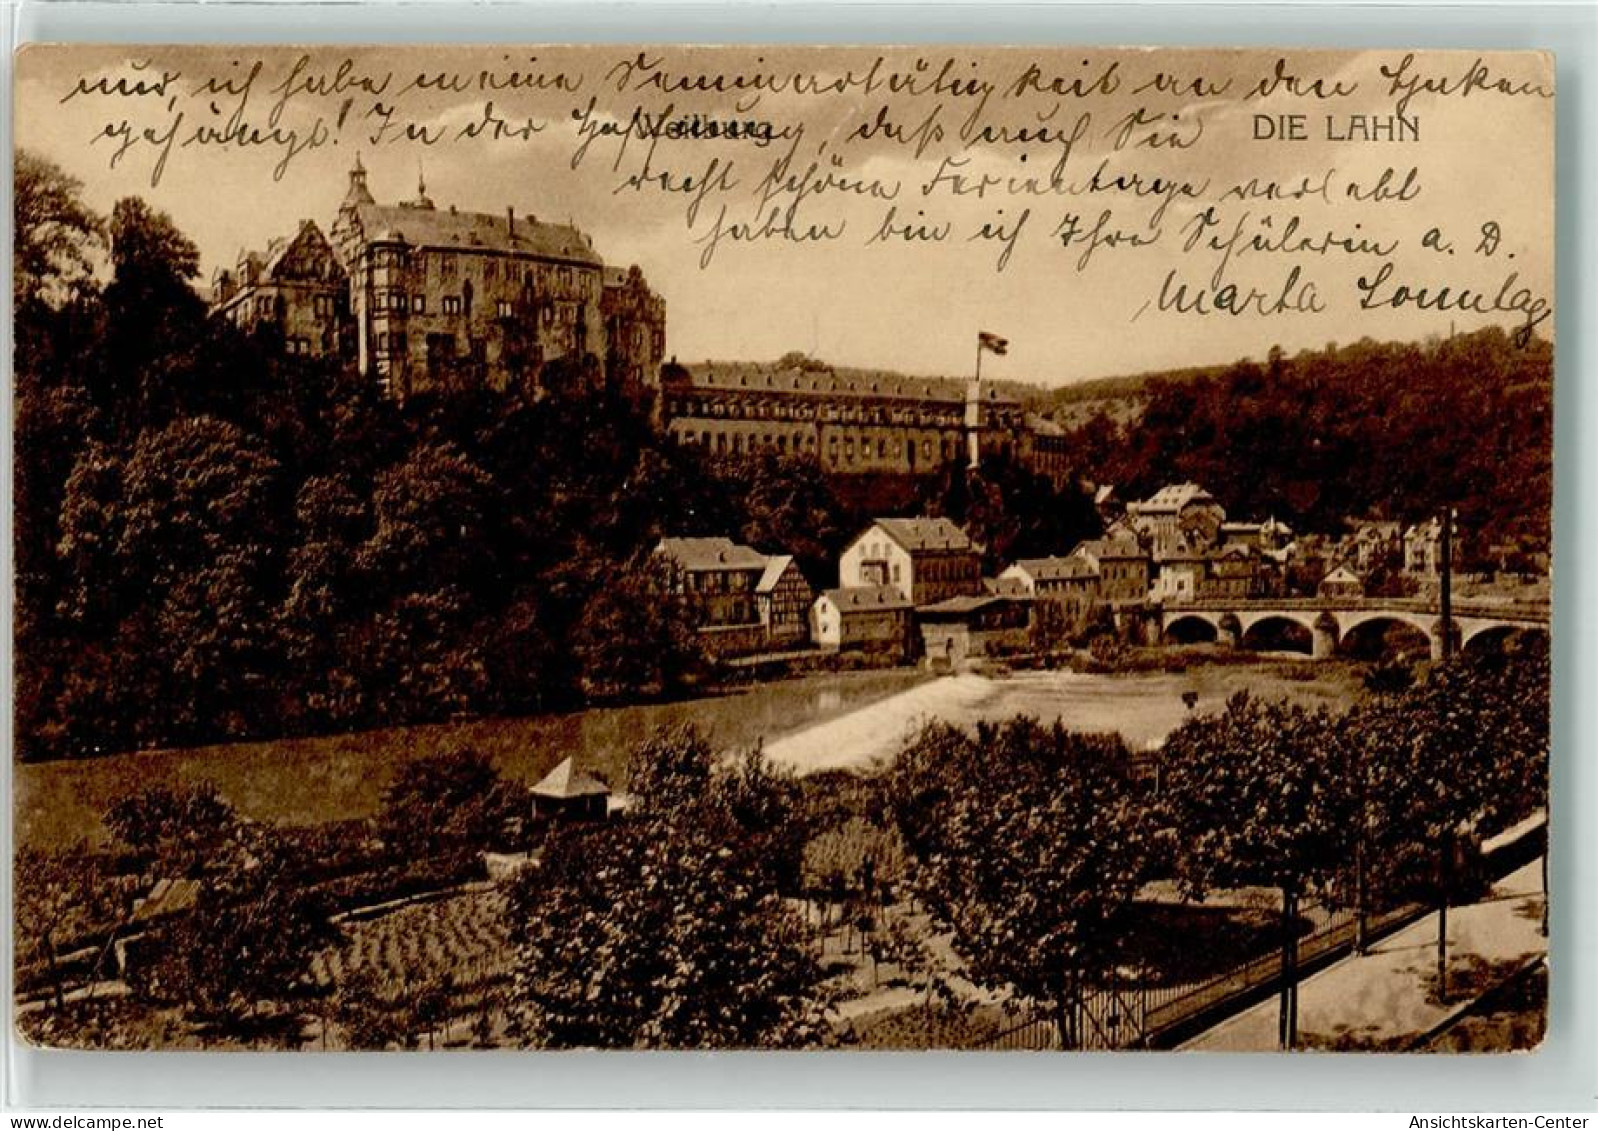 nur, ich habe meine Seminartätigkeit an den Haken
gehängt! In der Hoffnung, daß auch Sie
Weilburg
DIE LAHN
recht schöne Ferientage verlebt
haben bin ich Ihre Schülerin a. D.
Marta Sonntag
Ansichtskarten-Center